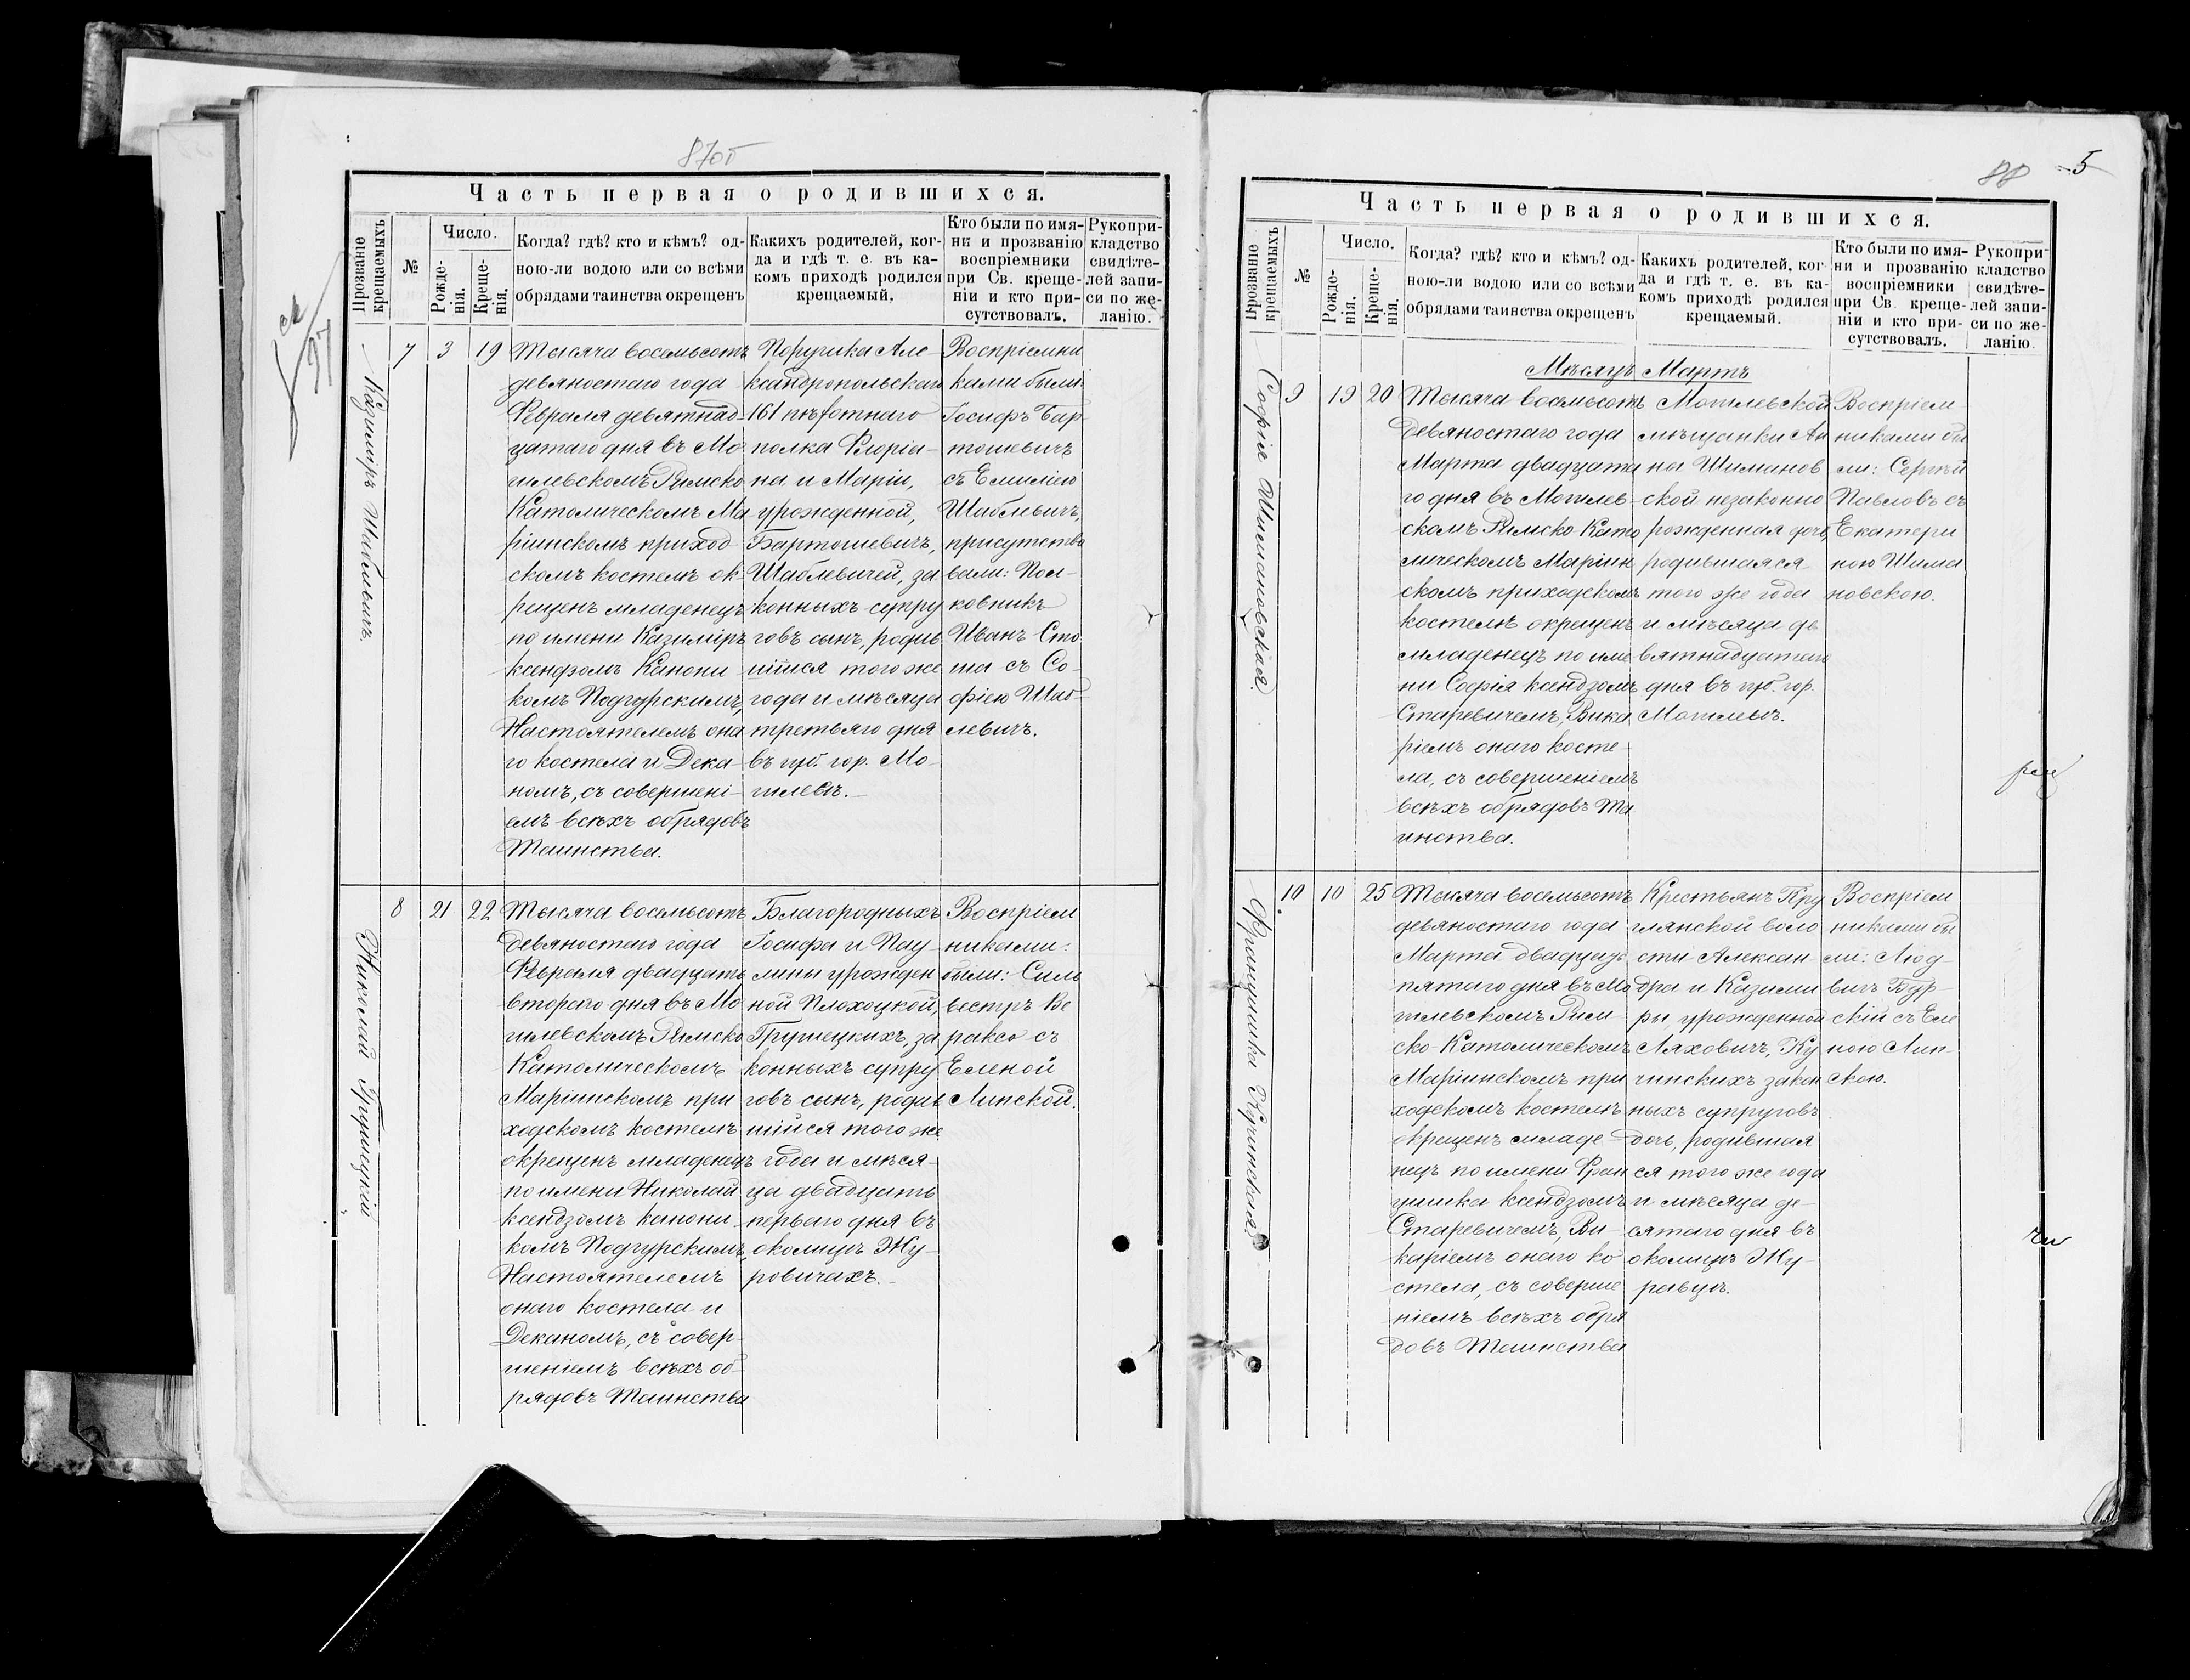 87об
Часть первая о родившихся.
Прозваніе крещаемыхъ
№
Число.
Рожде-
нія.
Креще-
нія.
Когда? гдѣ? кто и кѣмъ? од-
ною-ли водою или со всѣми
обрядами таинства окрещенъ
Какихъ родителей, ког-
да и гдѣ т. е. въ ка-
комъ приходѣ родился
крещаемый.
Кто были по имя-
ни и прозванію
воспріемники
при Св. креще-
ніи и кто при-
сутствовалъ.
Рукопри-
кладство
свидѣте-
лей запи-
си по же-
ланію.
Казиміръ Шаблевичъ.
7
3
19
Тысяча восемьсотъ
девяностаго года
Февраля девятнад-
цатаго дня въ Мо
гилевскомъ Римско
Католическомъ Ма
ріинскомъ приход
скомъ костелѣ ок-
рещенъ младенецъ
по имени Казиміръ
ксендзомъ Канони
комъ Подгурскимъ,
Настоятелемъ она
го костела и Дека-
номъ, съ совершені-
емъ всѣхъ обрядовъ
Таинства.
Поручика Але-
ксандропольскаго
161 пѣхотнаго
полка Флоріа-
на и Маріи,
урожденной,
Бартошевичъ,
Шаблевичей, за
конныхъ супру
говъ сынъ, родив
шійся того же
года и мѣсяца
третьяго дня
въ губ. гор. Мо-
гилевѣ.
Воспріемни
ками были:
Іосифъ Бар-
тошевичъ
съ Емиліею
Шаблевичъ,
присутство
вали: Пол-
ковникъ
Иванъ Сто
ша съ Со-
фіею Шаб-
левичъ.
Николай Гриневицкій
8
21
22
Тысяча восемьсотъ
девяностаго года
Февраля двадцать
втораго дня въ Мо
гилевскомъ Римско
Католическомъ
Маріинскомъ при
ходскомъ костелѣ
окрещенъ младенецъ
по имени Николай
ксендзомъ канони-
комъ Подгурскимъ,
Настоятелемъ
онаго костела и
Деканомъ, съ совер-
шеніемъ всѣхъ об-
рядовъ Таинства
Благородныхъ
Іосифа и Пау-
лины урожден
ной Плохоцкой,
за
конныхъ супру
говъ сынъ, родив
шійся того же
года и мѣся-
ца двадцать
перваго дня въ
околицѣ Жу-
ровичахъ.
Воспріем
никами:
были: Силь
вестръ Ве
раксо съ
Еленой
Липской.
88
5
Часть первая о родившихся.
Прозваніе крещаемыхъ
№
Число.
Рожде-
нія.
Креще-
нія.
Когда? гдѣ? кто и кѣмъ? од-
ною-ли водою или со всѣми
обрядами таинства окрещенъ
Какихъ родителей, ког-
да и гдѣ т. е. въ ка-
комъ приходѣ родился
крещаемый.
Кто были по имя-
ни и прозванію
воспріемники
при Св. креще-
ніи и кто при-
сутствовалъ.
Рукопри-
кладство
свидѣте-
лей запи-
си по же-
ланію.
Мѣсяцъ Мартъ
Софія Шимановская.
9
19
20
Тысяча восемьсотъ
девяностаго года
Марта двадцата
го дня въ Могилев-
скомъ Римско-Като
лическомъ Маріин
скомъ приходскомъ
костелѣ окрещенъ
младенецъ по име
ни Софія ксендзомъ
Старевичемъ, Вика
ріемъ онаго косте-
ла, съ совершеніемъ
всѣхъ обрядовъ Та
инства.
Могилевской
мѣщанки Ан
ны Шиманов
ской незаконно
рожденная дочь,
родившаяся
того же года
и мѣсяца де
вятнадцатаго
дня въ губ. гор.
Могилевѣ.
Воспріем
никами бы
ли: Сергѣй
Павловъ съ
Екатери
ною Шима
новскою.
Францишка Кучинская
10
10
25
Тысяча восемьсотъ
девяностаго года
Марта двадцать
пятаго дня въ Мо
гилевскомъ Рим-
ско-Католическомъ
Маріинскомъ при
ходскомъ костелѣ
окрещенъ младе-
нецъ по имени Фран
цишка ксендзомъ
Старевичемъ, Ви-
каріемъ онаго ко
стела, съ соверше
ніемъ всѣхъ обря
довъ Таинства
Крестьянъ Кру
глянской воло
сти Алексан
дра и Казими
ры, урожденной
Ляховичъ, Ку
чинскихъ закон
ныхъ супруговъ
дочь, родившая
ся того же года
и мѣсяца де-
сятаго дня въ
околицѣ Жу-
равцѣ.
Воспріем
никами бы
ли: Люд-
вигъ Бур-
скій съ Еле
ною Лип-
скою.